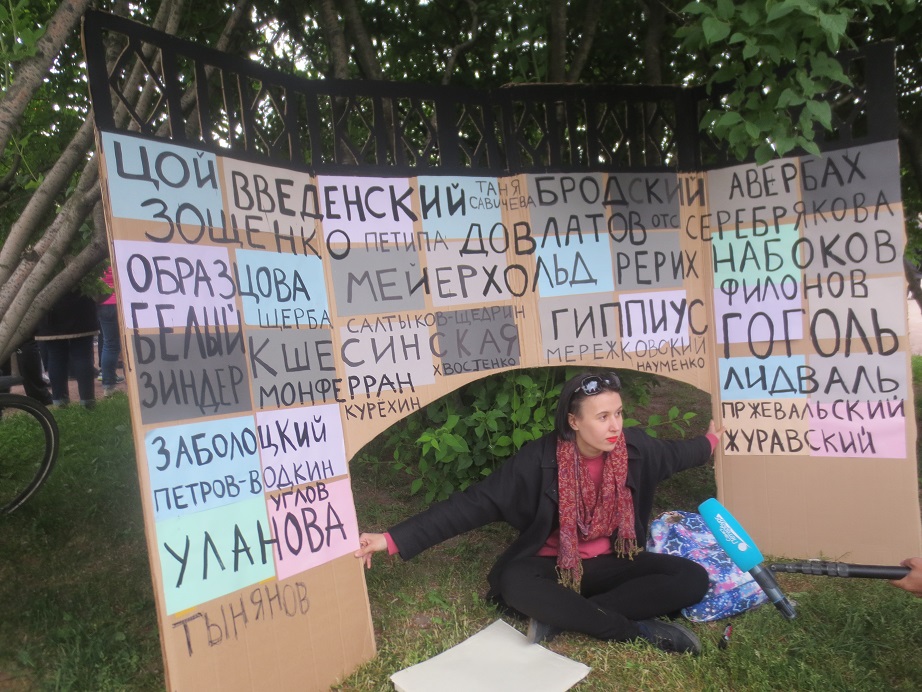 ЦОЙ
ВВЕДЕНСКИЙ
ТАНЯ
САВИЧЕВА
БРОДСКИЙ
АВЕРБАХ
ЗОЩЕНКО
ПЕТИПА
ДОВЛАТОВ
ОТС
СЕРЕБРЯКОВА
ОБРАЗЦОВА
МЕЙЕРХОЛЬД
РЕРИХ
НАБОКОВ
БЕЛЫЙ
ЩЕРБА
САЛТЫКОВ-ЩЕДРИН
ГИППИУС
ФИЛОНОВ
ЗИНДЕР
КШЕСИНСКАЯ
ХВОСТЕНКО
МЕРЕЖКОВСКИЙ
НАУМЕНКО
ГОГОЛЬ
МОНФЕРРАН
КУРЁХИН
ЛИДВАЛЬ
ЗАБОЛОЦКИЙ
ПРЖЕВАЛЬСКИЙ
ПЕТРОВ-ВОДКИН
ЖУРАВСКИЙ
УГЛОВ
УЛАНОВА
ТЫНЯНОВ